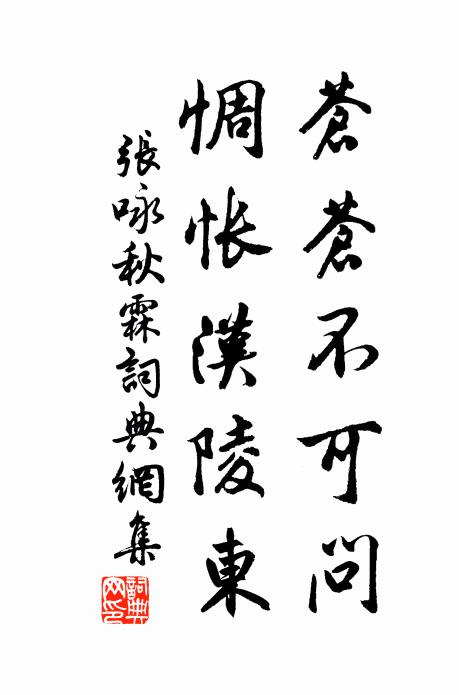 蒼蒼不可問
惆悵漢陵東
張咏秋霖詞典網集
詞典網印